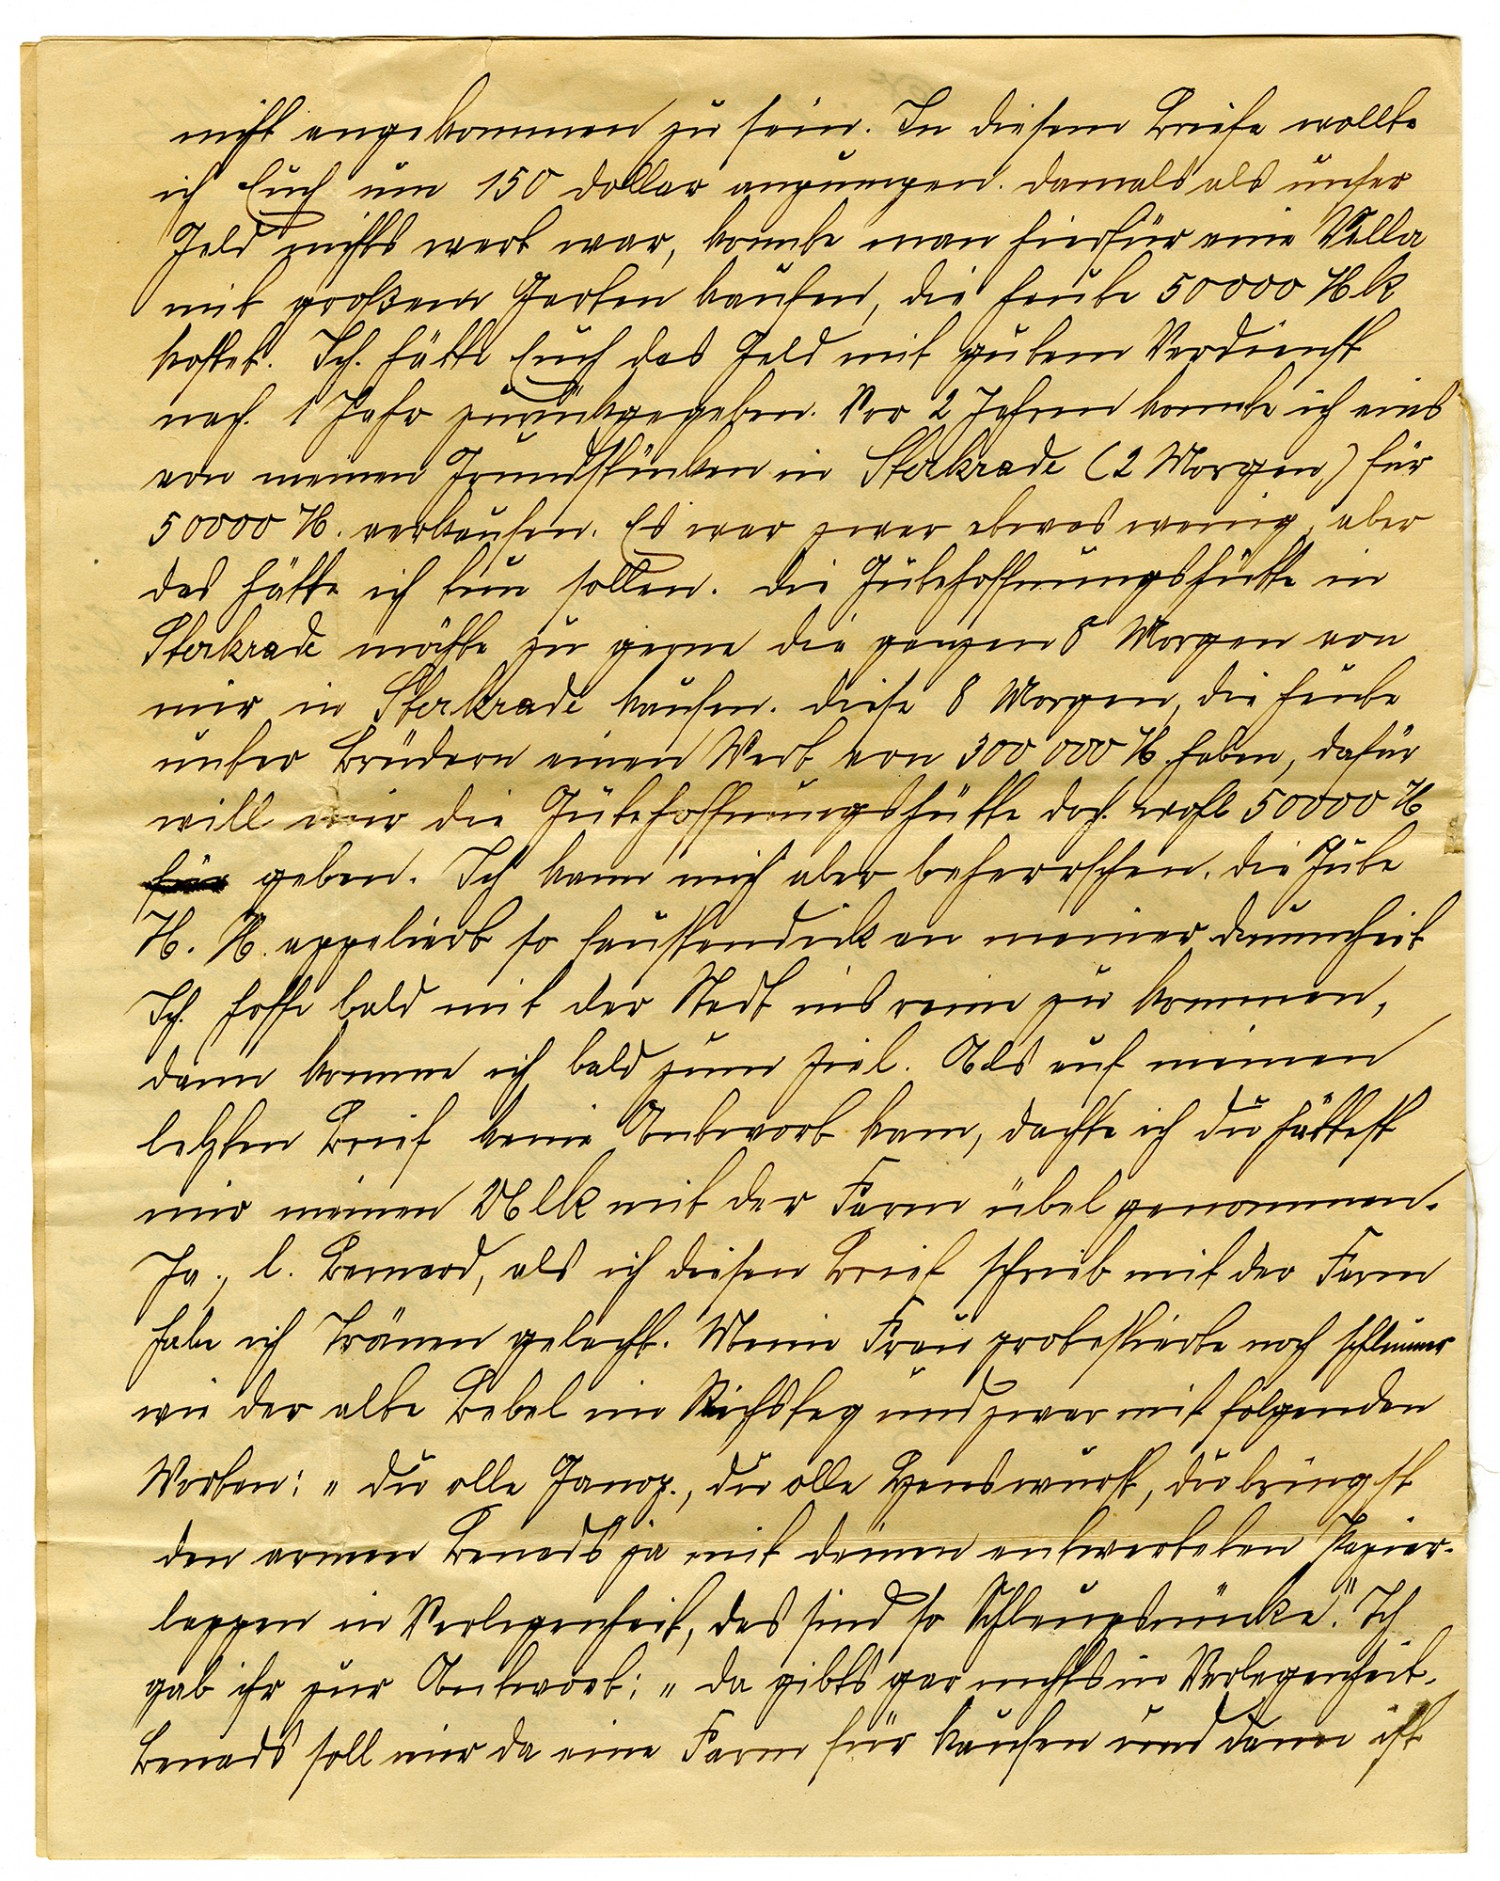 nicht angekommen zu sein. In diesem Briefe wollte
ich Euch um 150 Dollar anpumpen. Damals als unser
Geld nichts wert war, konnte man hierfür eine Villa
mit großem Garten kaufen, die heute 50000 Mk
kostet. Ich hätte Euch das Geld mit gutem Verdienst
nach 1 Jahr zurückgegeben. Vor 2 Jahren konnte ich eins
von meinen Grundstücken in Sterkrade (2 Morgen) für
50000 M. verkaufen. Es war zwar etwas wenig, aber
das hätte ich tun sollen. Die Gutehoffnungshütte in
Sterkrade möchte zu gerne die ganzen 8 Morgen von
mir in Sterkrade kaufen. Diese 8 Morgen, die heute
unter Brüdern einen Wert von 300 000 M. haben, dafür
will mir die Gutehoffnungshütte doch wohl 50000 M
für geben. Ich kann mich aber beherrschen. Die Gute
H. H. appeliert so faustendick an meiner Dummheit
Ich hoffe bald mit der Stadt ins reine zu kommen,
dann komme ich bald zum Ziel. Als auf meinen
letzten Brief keine Antwort kam, dachte ich du hättest
mir meinen Ulk mit der Farm übel genommen.
Ja, l. Bernard, als ich diesen Brief schrieb mit der Farm
habe ich Tränen gelacht. Meine Frau protestierte noch schlimmer
wie der alte Bebel im Reichstag und zwar mit folgenden
Worten: „Du olle Janop., du olle Henswurst, du bringst
den armen Bernads ja mit deinen entwerteten Papier-
lappen in Verlegenheit, das sind so". Ich
gab ihr zur Antwort: „Da gibts gar nichts in Verlegenheit.
Benads soll mir da eine Farm für kaufen und dann ist